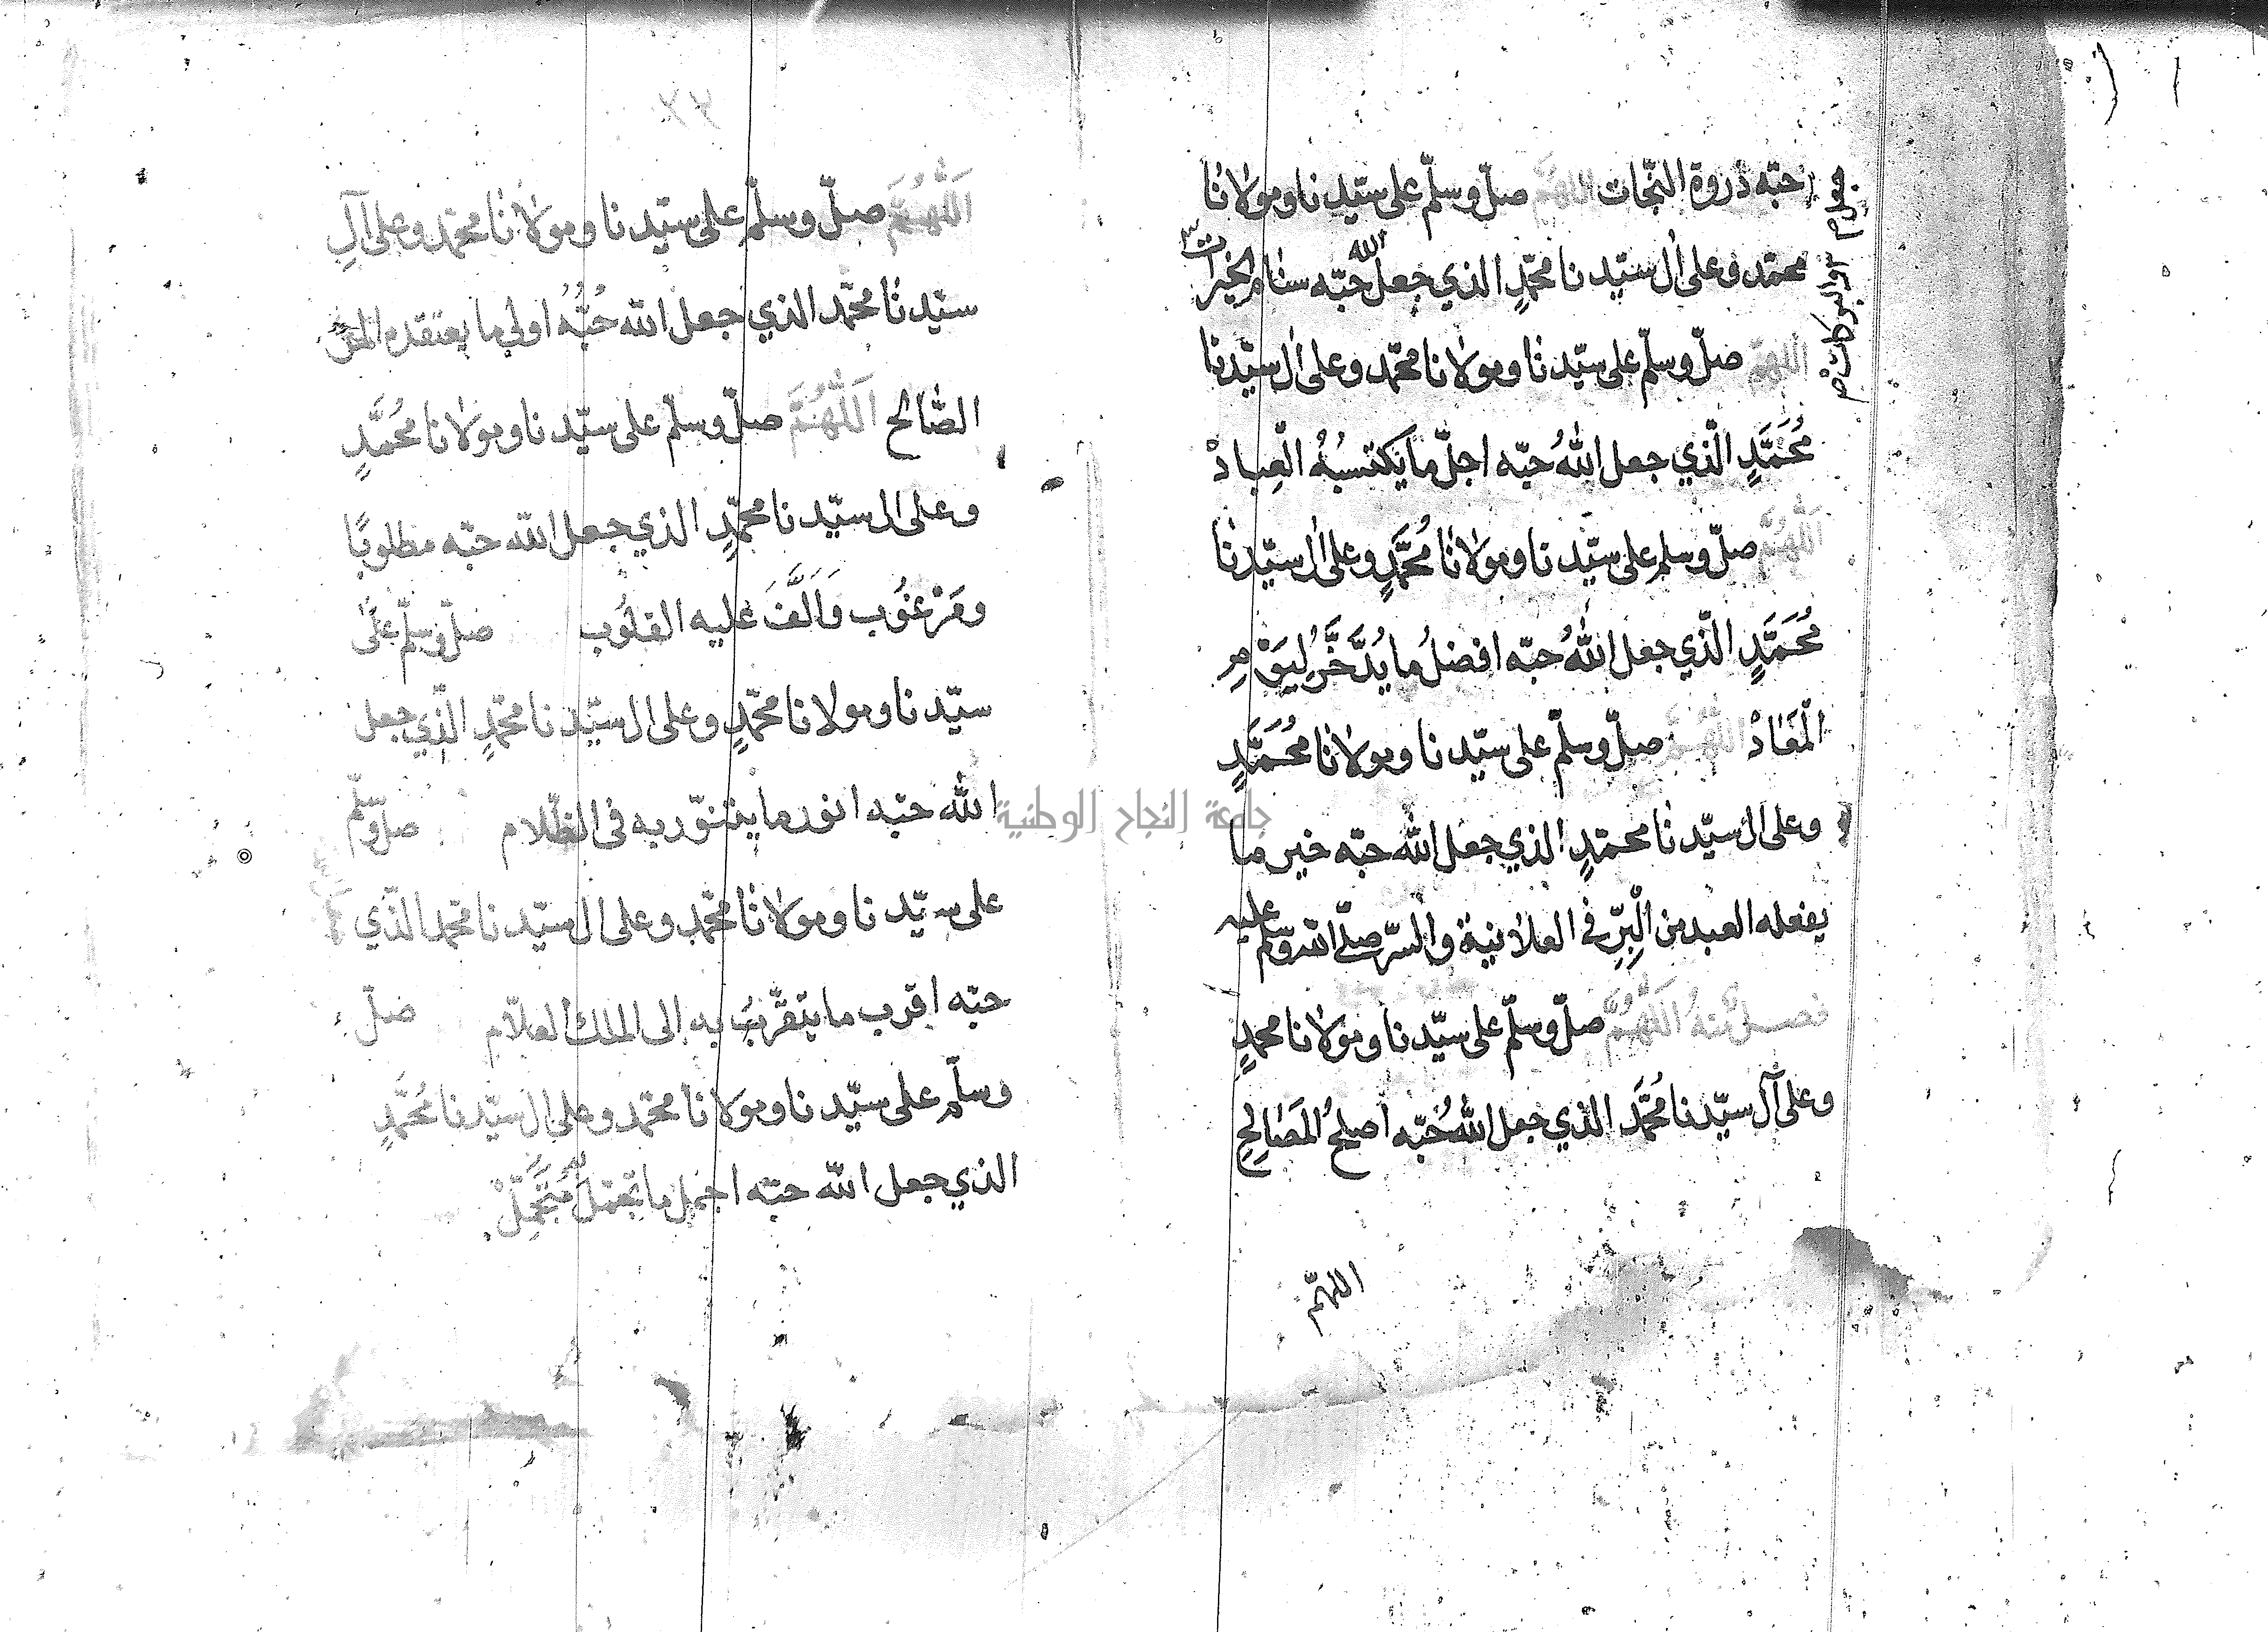 حبّه ذروة النّجات اللهمّ صلّ وسلّم على سيّدنا ومولانا
محمّد وعلى ال سيّدنا محمّدٍ الذي جعل الله حبّه سنام الخيرات
والبركات
اللهمّ صلّ وسلّم على سيّدنا ومولانا محمّد وعلى ال سيّدنا
مُحَمَّدٍ الّذي جعل اللهُ حبّه اجلّ ما يكتسبُهُ الْعِبادْ
اَللّٰهُمَّ صلّ وسلم على سيّدنا ومولانا مُحمَّدٍ وعلى ال سيّدنا
مُحَمَّدٍ الّذي جعل اللهُ حبّه افضلُ ما يُدَّخَّرُ لِيَوْمِ
الْمَعَادْ اللّٰهُمَّ صلّ وسلّم على سيّدنا ومولانا مُحَمَّدٍ
وعلى ال سيّدنا محمّدٍ الذي جعل الله حبّه خير ما
يفعله العبد من الْبِرِّ في العلانية والسّرّ صلّى الله عليه وسلّم
اَللّٰهُمَّ صلّ وسلّم على سيّدنا ومولانا محمدٍ
وعلى آل سيّدنا مُحمَّد الذي جعل اللهُ حُبّه اصلحُ المَصَالِحِ
اللهمّ
٢٣
اَللّٰهُمَّ صلّ وسلّم على سيّدنا ومولانا محمّد وعلى آلِ
سيّدنا محمّد الذي جعل الله حُبُّهُ اولى ما يعتقده
الصَّالح اَللّٰهُمَّ صلّ وسلّم على سيّدنا ومولانا مُحَمَّدٍ
وعلى ال سيّدنا محمّدٍ الذي جعل الله حبّه مطلوبًا
ومَرْغُوب وَاَلَّفَ عليه القلُوب صلّ وسلّم على
سيّدنا ومولانا محمّدٍ وعلى ال سيّدنا محمّدٍ الّذي جعل
الله حبّه انور ما يتنوّر به فى الظّلام صلّ وسلّم
على سيّدنا ومولانا محمّد وعلى ال سيّدنا محمد الذّي
حبّه اقرب ما يتقرّبُ به إلى الملك العلاّم صلّ
وسلّم على سيّدنا ومولانا محمّد وعلى ال سيّدنا مُحمَّدٍ
الذي جعل الله حبّه اجمل ما تجمّل به مُتَجَمِّلْ
جامعة النجاح الوطنية